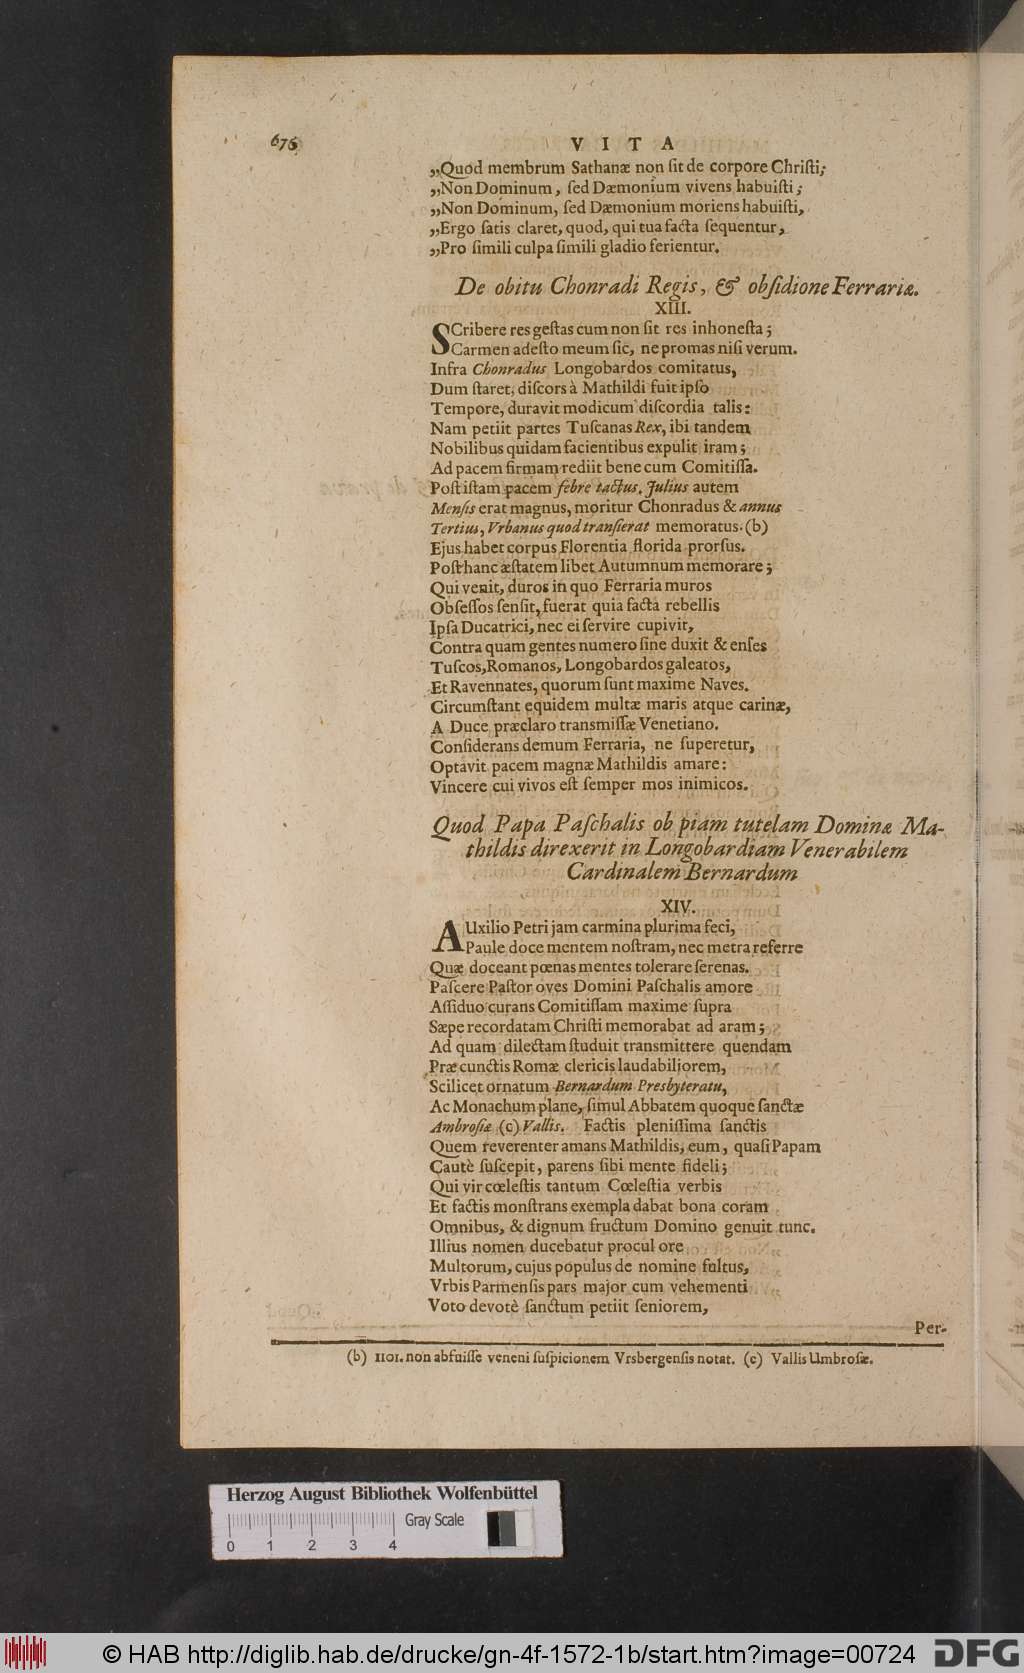 676
VITA
„Quod membrum Sathanæ non ſit de corpore Chriſti;
„Non Dominum, ſed Dæmonium vivens habuiſti;
„Non Dominum, ſed Dæmonium moriens habuiſti,
„Ergo ſatis claret, quod, qui tua facta ſequentur,
„Pro ſimili culpa ſimili gladio ferientur.
De obitu Chonradi Regis, & obſidione Ferrariæ.
XIII.
SCribere res geſtas cum non ſit res inhoneſta;
Carmen adeſto meum ſic, ne promas niſi verum.
Infra Chonradus Longobardos comitatus,
Dum ſtaret, diſcors à Mathildi fuit ipſo
Tempore, duravit modicum diſcordia talis:
Nam petiit partes Tuſcanas Rex, ibi tandem
Nobilibus quidam facientibus expulit iram;
Ad pacem firmam rediit bene cum Comitiſſa.
Poſt iſtam pacem febre tactus, Julius autem
Menſis erat magnus, moritur Chonradus & annus
Tertius, Vrbanus quod tranſierat memoratus. (b)
Ejus habet corpus Florentia florida prorſus.
Poſt hanc æſtatem libet Autumnum memorare;
Qui venit, duros in quo Ferraria muros
Obſeſſos ſenſit, fuerat quia facta rebellis
Ipſa Ducatrici, nec ei ſervire cupivit,
Contra quam gentes numero ſine duxit & enſes
Tuſcos, Romanos, Longobardos galeatos,
Et Ravennates, quorum ſunt maxime Naves.
Circumſtant equidem multæ maris atque carinæ,
A Duce præclaro transmiſſæ Venetiano.
Conſiderans demum Ferraria, ne ſuperetur,
Optavit pacem magnæ Mathildis amare:
Vincere cui vivos eſt ſemper mos inimicos.
Quod Papa Paſchalis ob piam tutelam Dominæ Ma-
thildis direxerit in Longobardiam Venerabilem
Cardinalem Bernardum
XIV.
AUxilio Petri jam carmina plurima feci,
Paule doce mentem noſtram, nec metra referre
Quæ doceant pœnas mentes tolerare ſerenas.
Paſcere Paſtor oves Domini Paſchalis amore
Aſſiduo curans Comitiſſam maxime ſupra
Sæpe recordatam Chriſti memorabat ad aram;
Ad quam dilectam ſtuduit transmittere quendam
Præ cunctis Romæ clericis laudabiliorem,
Scilicet ornatum Bernardum Presbyteratu,
Ac Monachum plane, ſimul Abbatem quoque ſanctæ
Ambroſiæ (c) Vallis. Factis pleniſſima ſanctis
Quem reverenter amans Mathildis, eum, quaſi Papam
Cautè ſuſcepit, parens ſibi mente fideli;
Qui vir cœleſtis tantum Cœleſtia verbis
Et factis monſtrans exempla dabat bona coram
Omnibus, & dignum fructum Domino genuit tunc.
Illius nomen ducebatur procul ore
Multorum, cujus populus de nomine fultus,
Vrbis Parmenſis pars major cum vehementi
Voto devotè ſanctum petiit ſeniorem,
Per-
(b) 1101. non abfuiſſe veneni ſuſpicionem Vrsbergenſis notat. (c) Vallis Umbroſæ.
Herzog August Bibliothek Wolfenbüttel
Gray Scale
0 1 2 3 4
© HAB http://diglib.hab.de/drucke/gn-4f-1572-1b/start.htm?image=00724
DFG